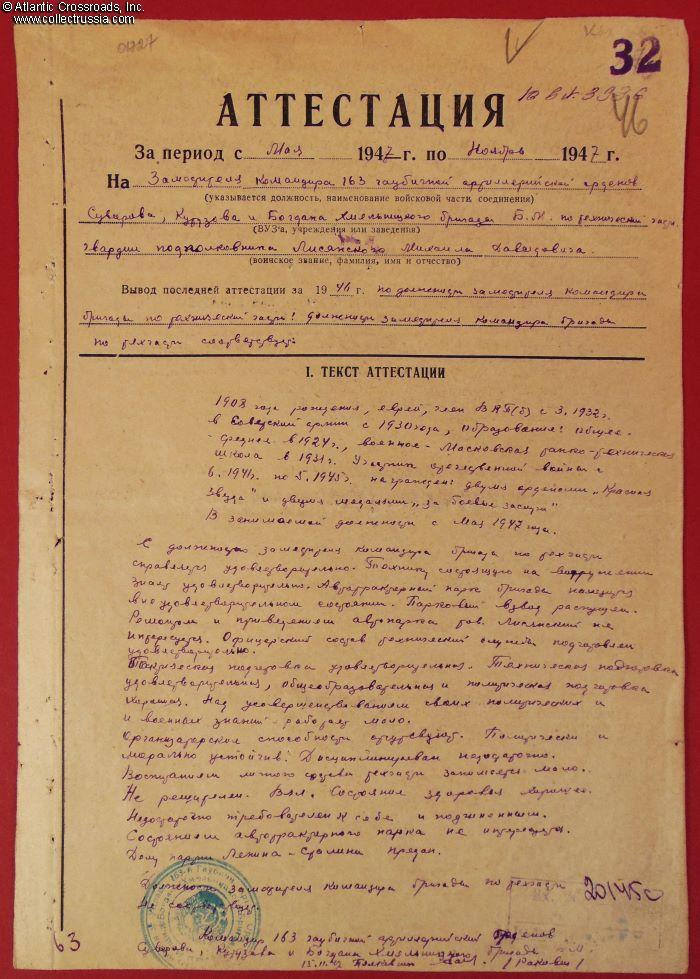 © Atlantic Crossroads, Inc.
www.collectrussia.com
32
46
АТТЕСТАЦИЯ
За период с Мая 1947 г. по Ноябрь 1947 г.
На Заместителя Командира 163 гаубичной артиллерийской орденов
(указывается должность, наименование войсковой части, соединения
Суворова, Кутузова и Богдана Хмельницкого бригады Б.М. по технической части
ВУЗ'а, учреждения или заведения)
гвардии подполковника Лисянского Михаила Давыдовича.
(воинское звание, фамилия, имя и отчество)
Вывод последней аттестации за 1946 г. по должности заместителя командира
бригады по технической части: должности заместителя командира бригады
по техчасти соответствует
I. ТЕКСТ АТТЕСТАЦИИ
1908 года рождения, еврей, член ВКП(б) с 3.1932 г.
в Советской армии с 1930 года, образование: общее-
среднее в 1924 г., военное - Московская танко-техническая
школа в 1931 г. Участник отечественной войны с
6.1941 г. по 5.1945 г. награжден: двумя орденами „Красная
Звезда" и двумя медалями „за боевые заслуги"
В занимаемой должности с Мая 1947 года.
С должностью заместителя командира бригады по техчасти
справляется удовлетворительно. Технику состоящую на вооружении
знает удовлетворительно. Автотракторный парк бригады находится
в неудовлетворительном состоянии. Парковый взвод распущен.
Ремонтом и приведением автопарка тов. Лисянский не
интересуется. Офицерский состав технической службы подготовлен
удовлетворительно.
Тактическая подготовка удовлетворительная. Техническая подготовка
удовлетворительная, общеобразовательная и политическая подготовка
хорошая. Над усовершенствованием своих политических и
и военных знаний работает мало.
Организаторские способности отсутствуют. Политически и
морально устойчив. Дисциплинирован недостаточно.
Воспитанием личного состава техчасти занимается мало.
Не решителен. Вял. Состояние здоровья хорошее.
Недостаточно требователен к себе и подчиненным.
Состоянием автотракторного парка не интересуется.
Делу партии Ленина - Сталина предан.
Должности заместителя командира бригады по техчасти
не соответствует
Командир 163 гаубичной артиллерийской орденов
Суворова, Кутузова и Богдана Хмельницкого бригады
15.11.47 Полковник
63